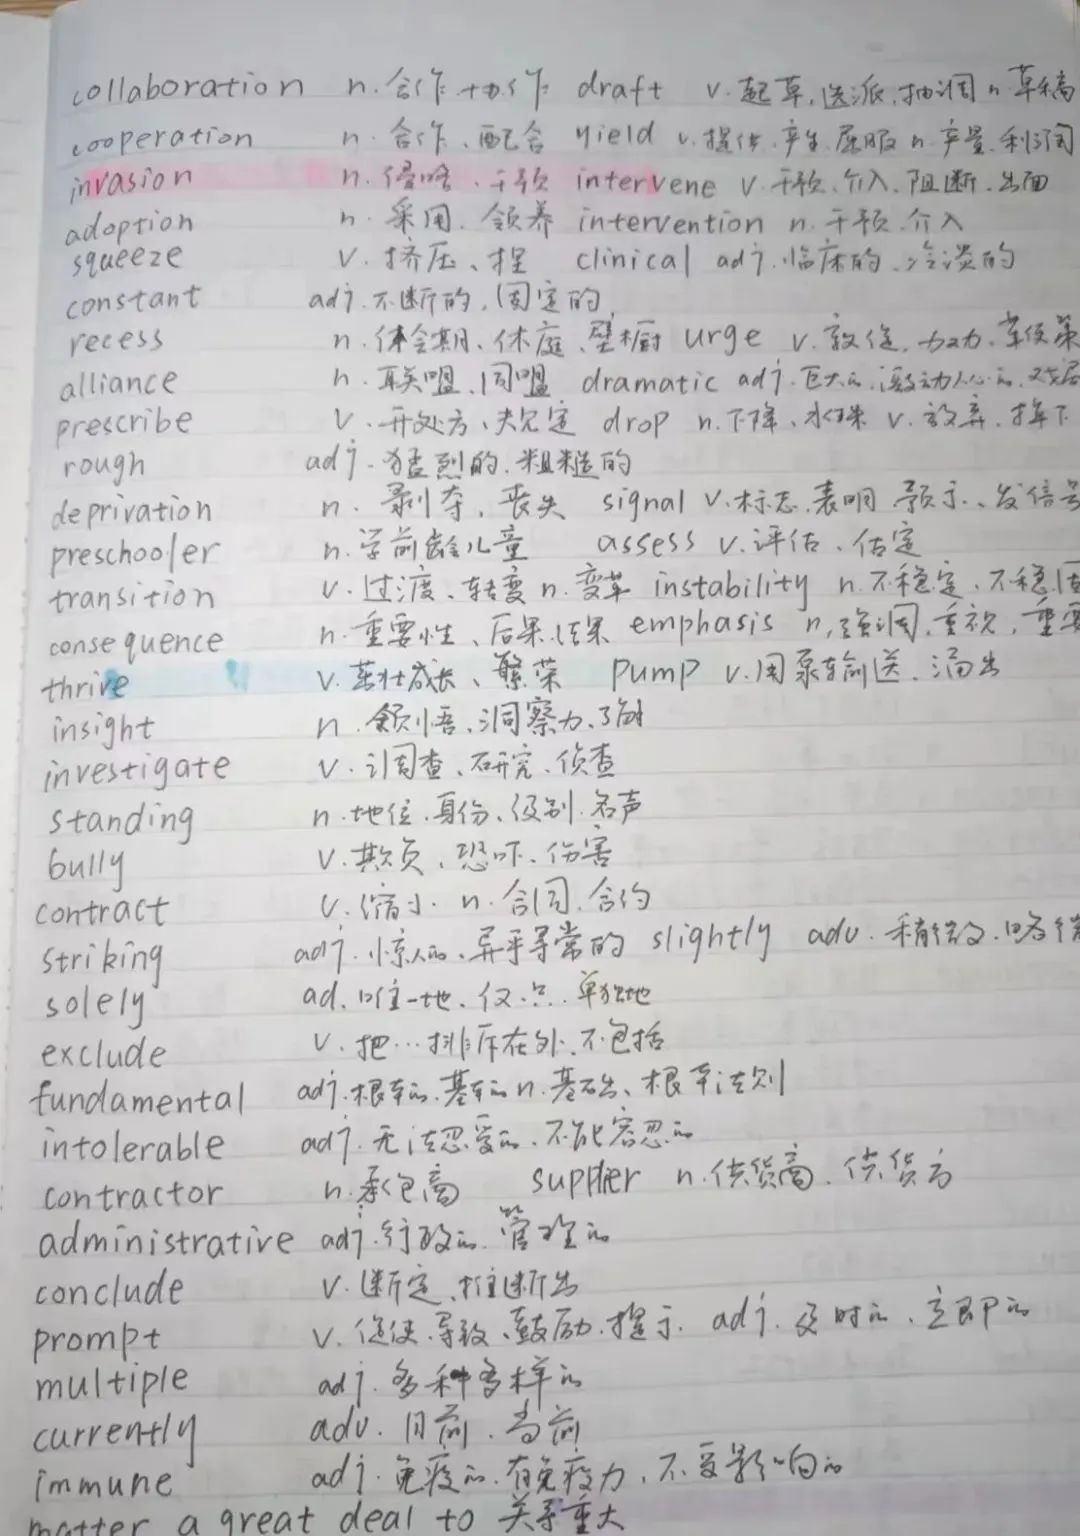 collaboration n. 合作 协作 draft v. 起草, 选派, 抽调 n. 草稿
cooperation n. 合作、配合 yield v. 提供, 产生, 屈服 n. 产量, 利润
invasion n. 侵略、干预 intervene v. 干预、介入, 阻断, 出面
adoption n. 采用, 领养 intervention n. 干预, 介入
squeeze v. 挤压、捏 clinical adj. 临床的、冷淡的
constant adj. 不断的, 固定的
recess n. 休会期、休庭、壁橱 urge v. 敦促,
alliance n. 联盟、同盟 dramatic adj. 巨大的, 激动人心的,
prescribe v. 开处方、规定 drop n. 下降、水珠 v. 放弃, 掉下
rough adj. 猛烈的, 粗糙的
deprivation n. 剥夺, 丧失 signal v. 标志, 表明 预示、发信号
preschooler n. 学前龄儿童 assess v. 评估、估定
transition v. 过渡、转变 n. 变革 instability n. 不稳定, 不稳固
consequence n. 重要性、后果, 结果 emphasis n, 强调, 重视, 重要
thrive v. 茁壮成长、繁荣 pump v. 用泵输送, 涌出
insight n. 领悟, 洞察力,
investigate v. 调查、研究、侦查
standing n. 地位, 身份、级别, 名声
bully v. 欺负、恐吓、伤害
contract v. 缩小. n. 合同, 合约
striking adj. 惊人的、异乎寻常的 slightly adv. 稍微, 略微
solely ad. 唯一地、仅, 只, 单独地
exclude v. 把…排斥在外、不包括
fundamental adj. 根本的, 基本的 n. 基础、根本法则
intolerable adj. 无法忍受的、不能容忍的
contractor n. 承包商 supplier n. 供货商、供货方
administrative adj. 行政的, 管理的
conclude v. 断定, 推断出
prompt v. 促使, 导致、鼓励, 提示. adj. 及时的、立即的
multiple adj. 多种多样的
currently adv. 目前, 当前
immune adj. 免疫的, 有免疫力, 不受影响的
matter a great deal to 关系重大